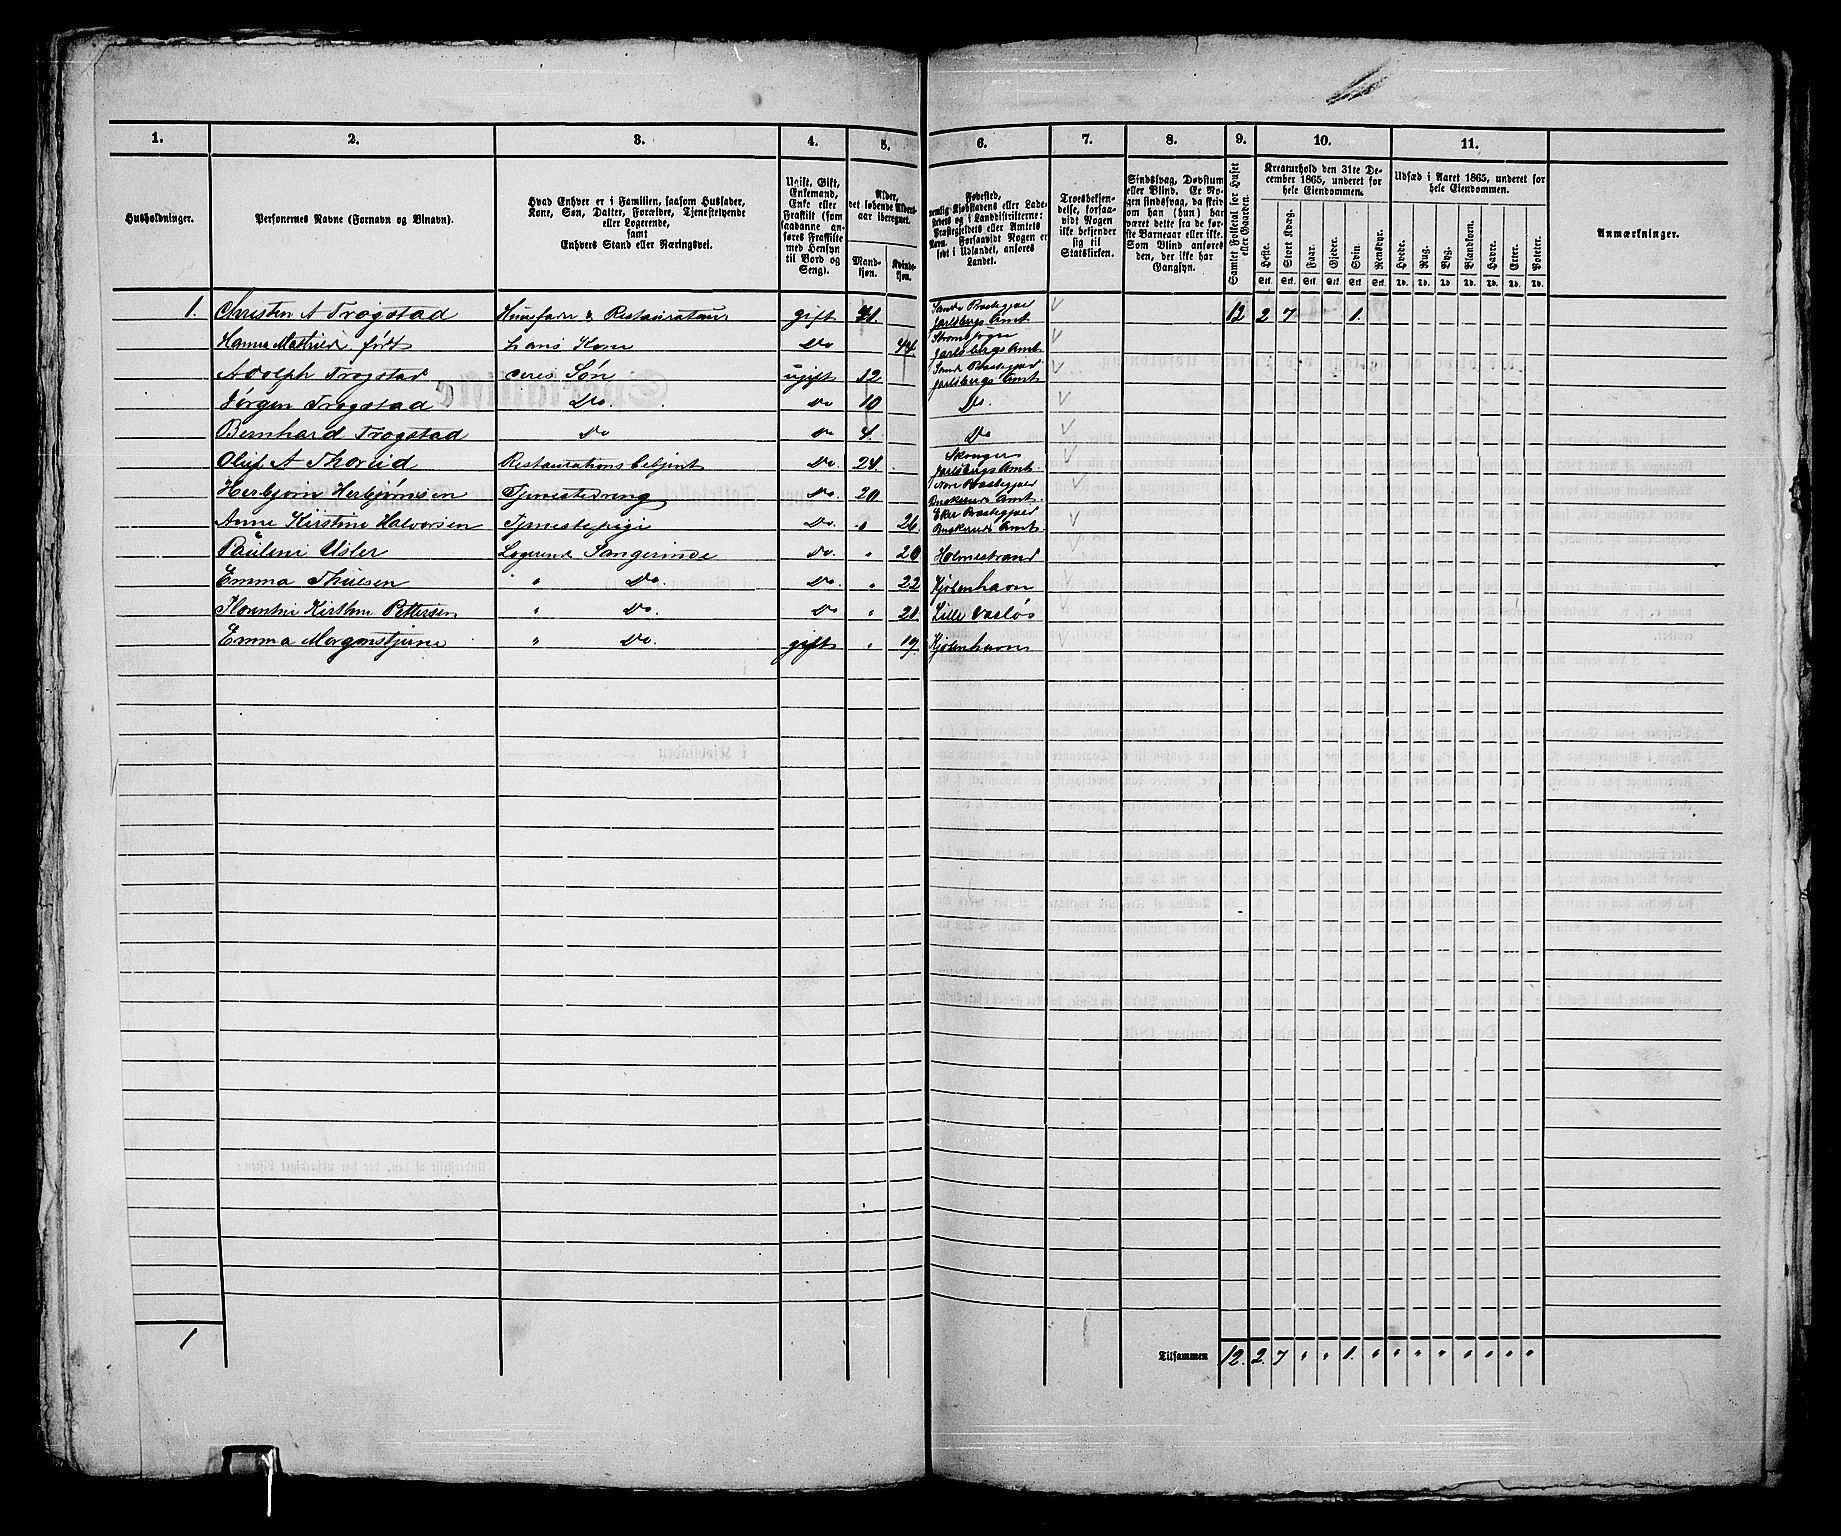 1. 2. 3. 4. 5. 6. 7. 8. 9. 10. 11.
Husholdninger.
Personernes Navne (Fornavn og Binavn).
Hvad Enhver er i Familien, saasom Husfader,
Kone, Søn, Datter, Forældre, Tjenestetyende
eller Logerende,
samt
Enhvers Stand eller Næringsvei.
Ugift, Gift,
Enkemand,
Enke eller
Fraskilt (som
saadanne an-
føres Fraskilte
med Hensyn
til Bord og
Seng).
Alder,
det løbende Alders-
aar iberegnet.
Mand-
kjøn.
Kvinde-
kjøn.
Fødested,
nemlig Kjøbstadens eller Lade-
stedets og i Landdistrikterne:
Præstegjeldets eller Amtets
Navn. Forsaavidt Nogen er
født i Udlandet, anføres
Landet.
Troesbekjen-
delse, forsaa-
vidt Nogen
ikke bekjender
sig til
Statskirken.
Sindssvag, Døvstum
eller Blind. Er No-
gen sindssvag, da skriv
om han (hun) har
været dette fra de før-
ste Barneaar eller ikke.
Som Blind anføres
den, der ikke har
Gangsyn.
Samlet Folketal for Huset
eller Gaarden.
Kreaturhold den 31te De-
cember 1865, underet for
hele Eiendommen.
Heste. Stort Kvæg. Faar. Gjeder. Svin. Rensdyr.
Stk. Stk. Stk. Stk. Stk. Stk.
Udsæd i Aaret 1865, underet for
hele Eiendommen.
Hvede. Rug. Byg. Blandkorn. Havre. Erter. Poteter.
Td. Td. Td. Td. Td. Td. Td.
Anmærkninger.
1. Christen A Trogstad Huusfader & Restaurateur gift 41. Sande Præstegjeld Jarlsbergs Amt 12 2 7 1.
Hanna Mathilde født hans Kone Do 44. Jarlsbergs Amt
Adolph Trogstad deres Søn ugift 12 Sande Præstegjeld Jarlsbergs Amt
Jørgen Trogstad Do. Do 10 Do.
Bernhard Trogstad Do Do 4. Do
Oluf A Thorud Restaurationsbetjent Do. 24. Skouger Jarlsbergs Amt.
Herbjørn Herbjørnsen Tjenestedreng Do. 20 Nore Præstegjeld Buskeruds Amt.
Anne Kirstine Halvorsen Tjenestepige Do. " 26 Eker Præstegjeld Buskeruds Amt.
Pauline Usler Logerende Sangerinde do. " 20 Holmestrand
Emma Thuesen " Do. Do. " 22 Kjøbenhavn
Florentine Kirstine Pettersen " Do. Do " 21. Lille
Emma Morgenstjerne " Do. gift " 19. Kjøbenhavn
1 Tilsammen 12. 2. 7 " " 1. " " " " " " " "